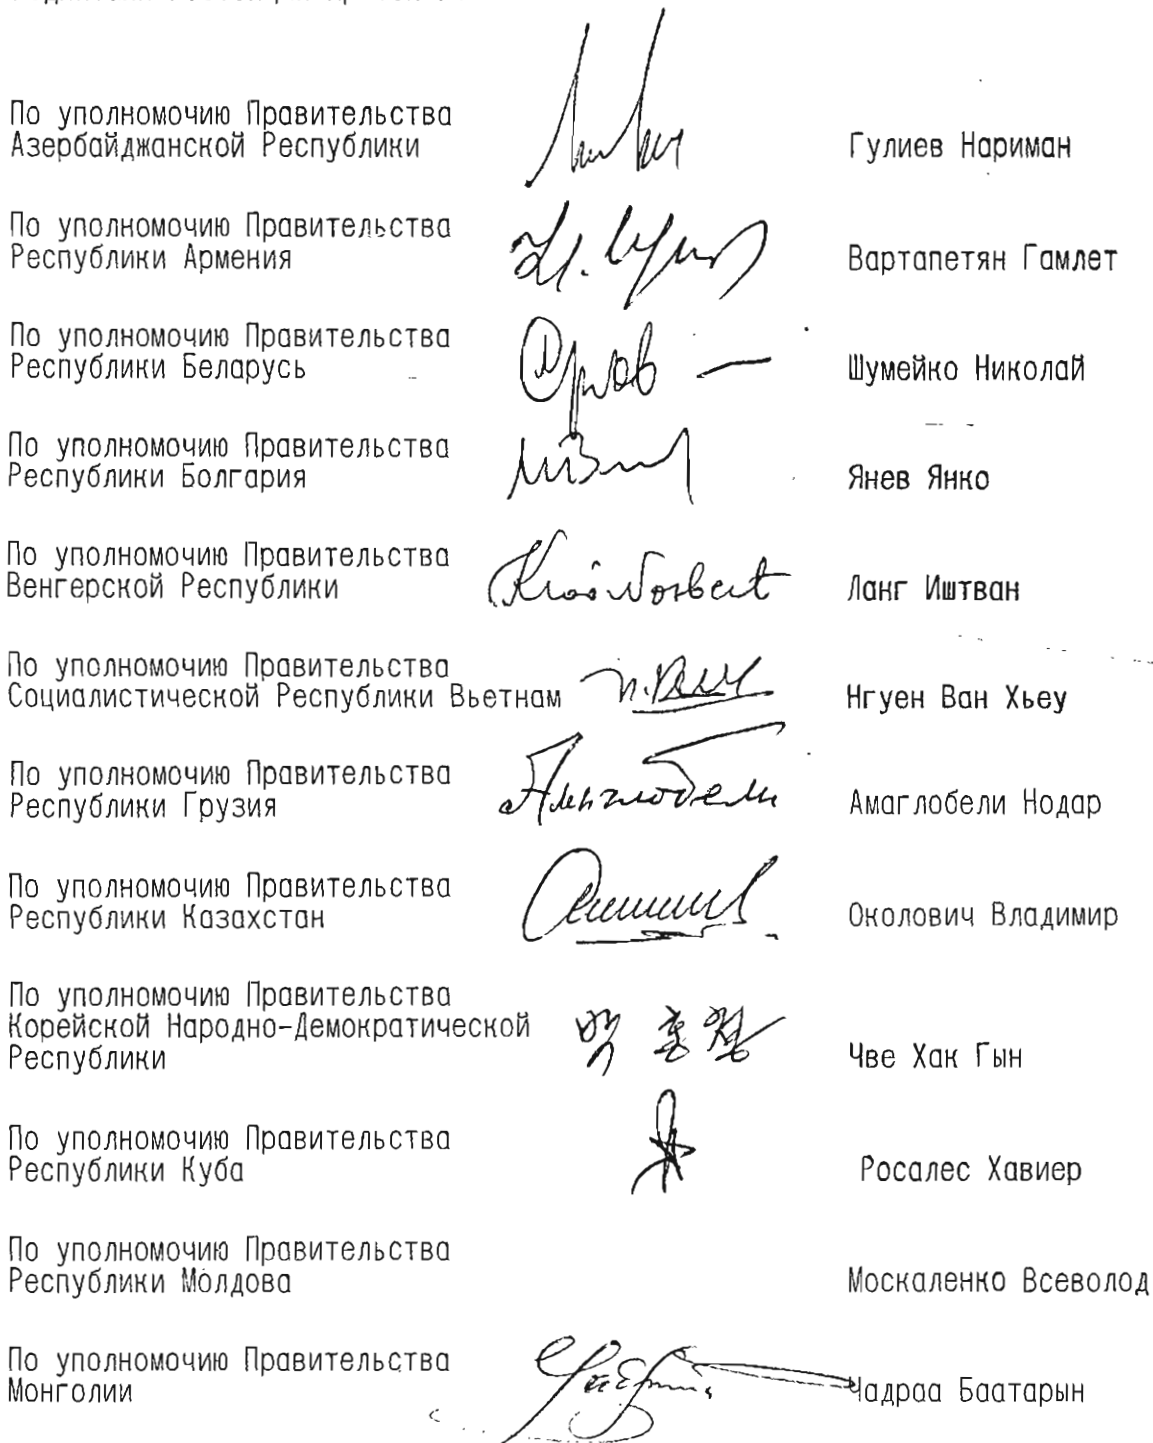 По уполномочию Правительства
Азербайджанской Республики
Гулиев Нариман
По уполномочию Правительства
Республики Армения
Вартапетян Гамлет
По уполномочию Правительства
Республики Беларусь
Шумейко Николай
По уполномочию Правительства
Республики Болгария
Янев Янко
По уполномочию Правительства
Венгерской Республики
Kroó Norbert
Ланг Иштван
По уполномочию Правительства
Социалистической Республики Вьетнам
Нгуен Ван Хьеу
По уполномочию Правительства
Республики Грузия
Амаглобели
Амаглобели Нодар
По уполномочию Правительства
Республики Казахстан
Околович Владимир
По уполномочию Правительства
Корейской Народно-Демократической
Республики
Чве Хак Гын
По уполномочию Правительства
Республики Куба
Росалес Хавиер
По уполномочию Правительства
Республики Молдова
Москаленко Всеволод
По уполномочию Правительства
Монголии
Чадраа Баатарын